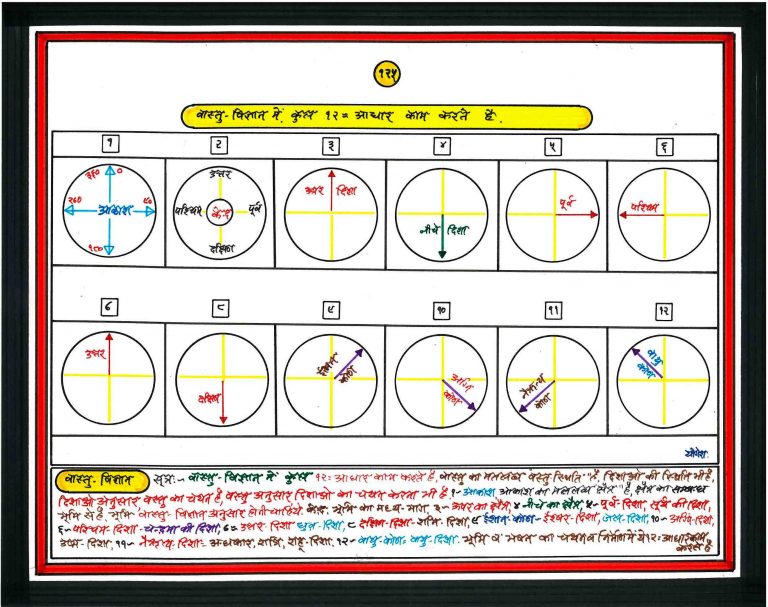 १२५
वास्तु-विज्ञान में, कुल १२= आधार काम करते है.
१ २ ३ ४ ५ ६
३६० ०
२७० आकाश ९०
१८०
उत्तर
पश्चिम केन्द्र पूर्व
दक्षिण
उपर दिशा
नीचे दिशा
पूर्व
पश्चिम
७ ८ ९ १० ११ १२
उत्तर
दक्षिण
ईशान कोण
अग्नि कोण
नैऋत्य कोण
वायु कोण
योगेश
वास्तु-विज्ञान सूत्र:- वास्तु-विज्ञान में कुल १२= आधार काम करते है, वास्तु का मतलब वस्तु स्थिति है, दिशाओ की स्थिति भी है,
दिशाओ अनुसार वस्तु का चयन है, वस्तु अनुसार दिशाओ का चयन करना भी है १- आकाश आकाश का मतलब क्षेत्र है, क्षेत्र का सम्बन्ध
भूमि से है. भूमि वास्तु-विज्ञान अनुसार होनी चाहिये केन्द्र भूमि का मध्य-भाग. ३= उपर का क्षेत्र, ४ नीचे का क्षेत्र, ५- पूर्व-दिशा, सूर्य की दिशा,
६- पश्चिम-दिशा-चन्द्रमा की दिशा, ७= उत्तर-दिशा ध्रुव-दिशा, ८ दक्षिण-दिशा-शनि-दिशा, ९ ईशान-कोण-ईश्वर-दिशा, जल-दिशा, १०- अग्नि-दिशा,
उष्म-दिशा, ११- नैऋत्य-दिशा- अन्धकार, रात्रि, राहु-दिशा. १२- वायु-कोण= वायु-दिशा. भूमि व भवन का चयन व निर्माण में ये १२= आधार काम
करते है